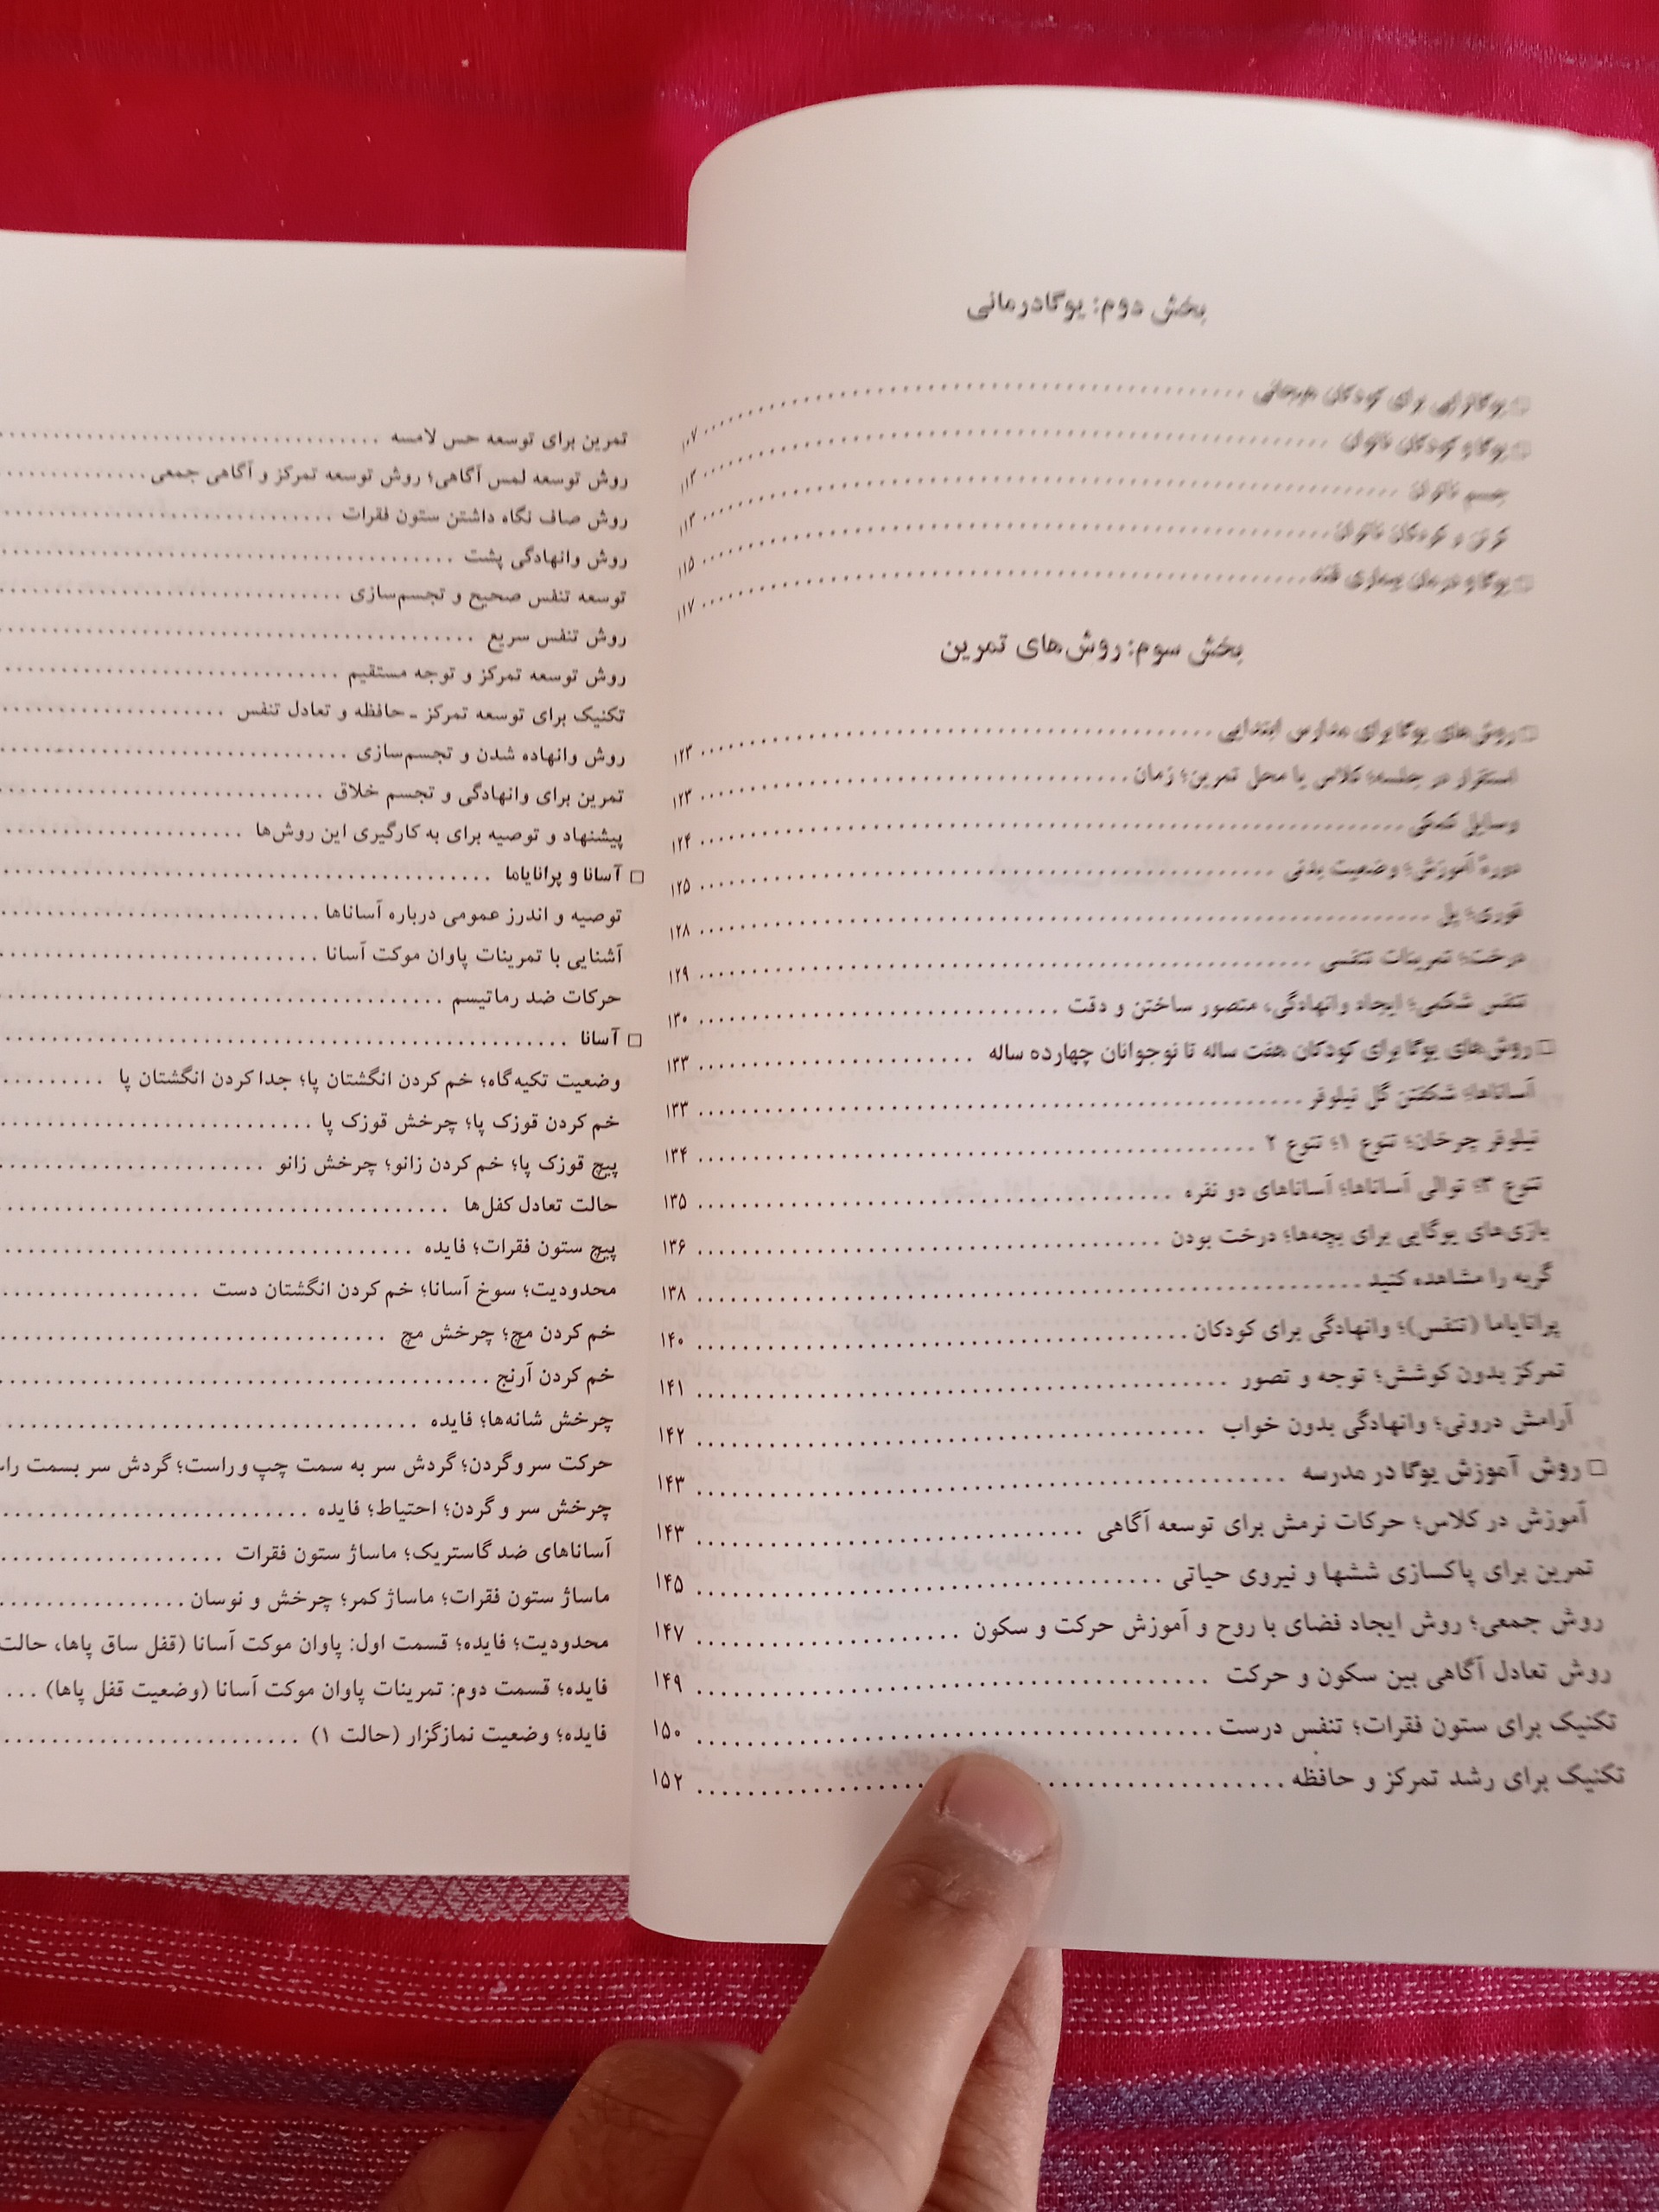 بخش دوم: یوگادرمانی
□ یوگاتراپی برای کودکان هیجانی ........ ۱۰۷
□ یوگا و کودکان ناتوان ........ ۱۱۲
جسم ناتوان ........ ۱۱۳
و کودکان ناتوان ........ ۱۱۵
□ یوگا و درمان بیماری قند ........ ۱۱۷
بخش سوم: روش‌های تمرین
□ روش‌های یوگا برای مدارس ابتدایی ........ ۱۲۳
استقرار در جلسه؛ کلاس یا محل تمرین؛ زمان ........ ۱۲۳
وسایل کمکی ........ ۱۲۴
دورهٔ آموزش؛ وضعیت بدنی ........ ۱۲۵
قوری؛ پل ........ ۱۲۸
درخت؛ تمرینات تنفسی ........ ۱۲۹
تنفس شکمی؛ ایجاد وانهادگی، متصور ساختن و دقت ........ ۱۳۰
□ روش‌های یوگا برای کودکان هفت ساله تا نوجوانان چهارده ساله ........ ۱۳۳
آساناها؛ شکفتن گل نیلوفر ........ ۱۳۳
نیلوفر چرخان؛ تنوع ۱؛ تنوع ۲ ........ ۱۳۴
تنوع ۳؛ توالی آساناها؛ آساناهای دو نفره ........ ۱۳۵
بازی‌های یوگایی برای بچه‌ها؛ درخت بودن ........ ۱۳۶
گربه را مشاهده کنید ........ ۱۳۸
پرانایاما (تنفس)؛ وانهادگی برای کودکان ........ ۱۴۰
تمرکز بدون کوشش؛ توجه و تصور ........ ۱۴۱
آرامش درونی؛ وانهادگی بدون خواب ........ ۱۴۲
□ روش آموزش یوگا در مدرسه ........ ۱۴۳
آموزش در کلاس؛ حرکات نرمش برای توسعه آگاهی ........ ۱۴۳
تمرین برای پاکسازی ششها و نیروی حیاتی ........ ۱۴۵
روش جمعی؛ روش ایجاد فضای با روح و آموزش حرکت و سکون ........ ۱۴۷
روش تعادل آگاهی بین سکون و حرکت ........ ۱۴۹
تکنیک برای ستون فقرات؛ تنفس درست ........ ۱۵۰
تکنیک برای رشد تمرکز و حافظه ........ ۱۵۲
تمرین برای توسعه حس لامسه ........
روش توسعه لمس آگاهی؛ روش توسعه تمرکز و آگاهی جمعی ........
روش صاف نگاه داشتن ستون فقرات ........
روش وانهادگی پشت ........
توسعه تنفس صحیح و تجسم‌سازی ........
روش تنفس سریع ........
روش توسعه تمرکز و توجه مستقیم ........
تکنیک برای توسعه تمرکز ـ حافظه و تعادل تنفس ........
روش وانهاده شدن و تجسم‌سازی ........
تمرین برای وانهادگی و تجسم خلاق ........
پیشنهاد و توصیه برای به کارگیری این روش‌ها ........
□ آسانا و پرانایاما ........
توصیه و اندرز عمومی درباره آساناها ........
آشنایی با تمرینات پاوان موکت آسانا ........
حرکات ضد رماتیسم ........
□ آسانا ........
وضعیت تکیه‌گاه؛ خم کردن انگشتان پا؛ جدا کردن انگشتان پا ........
خم کردن قوزک پا؛ چرخش قوزک پا ........
پیچ قوزک پا؛ خم کردن زانو؛ چرخش زانو ........
حالت تعادل کفل‌ها ........
پیچ ستون فقرات؛ فایده ........
محدودیت؛ سوخ آسانا؛ خم کردن انگشتان دست ........
خم کردن مچ؛ چرخش مچ ........
خم کردن آرنج ........
چرخش شانه‌ها؛ فایده ........
حرکت سر و گردن؛ گردش سر به سمت چپ و راست؛ گردش سر بسمت
چرخش سر و گردن؛ احتیاط؛ فایده ........
آساناهای ضد گاستریک؛ ماساژ ستون فقرات ........
ماساژ ستون فقرات؛ ماساژ کمر؛ چرخش و نوسان ........
محدودیت؛ فایده؛ قسمت اول: پاوان موکت آسانا (قفل ساق پاها، حالت
فایده؛ قسمت دوم: تمرینات پاوان موکت آسانا (وضعیت قفل پاها) ...
فایده؛ وضعیت نمازگزار (حالت ۱) ........